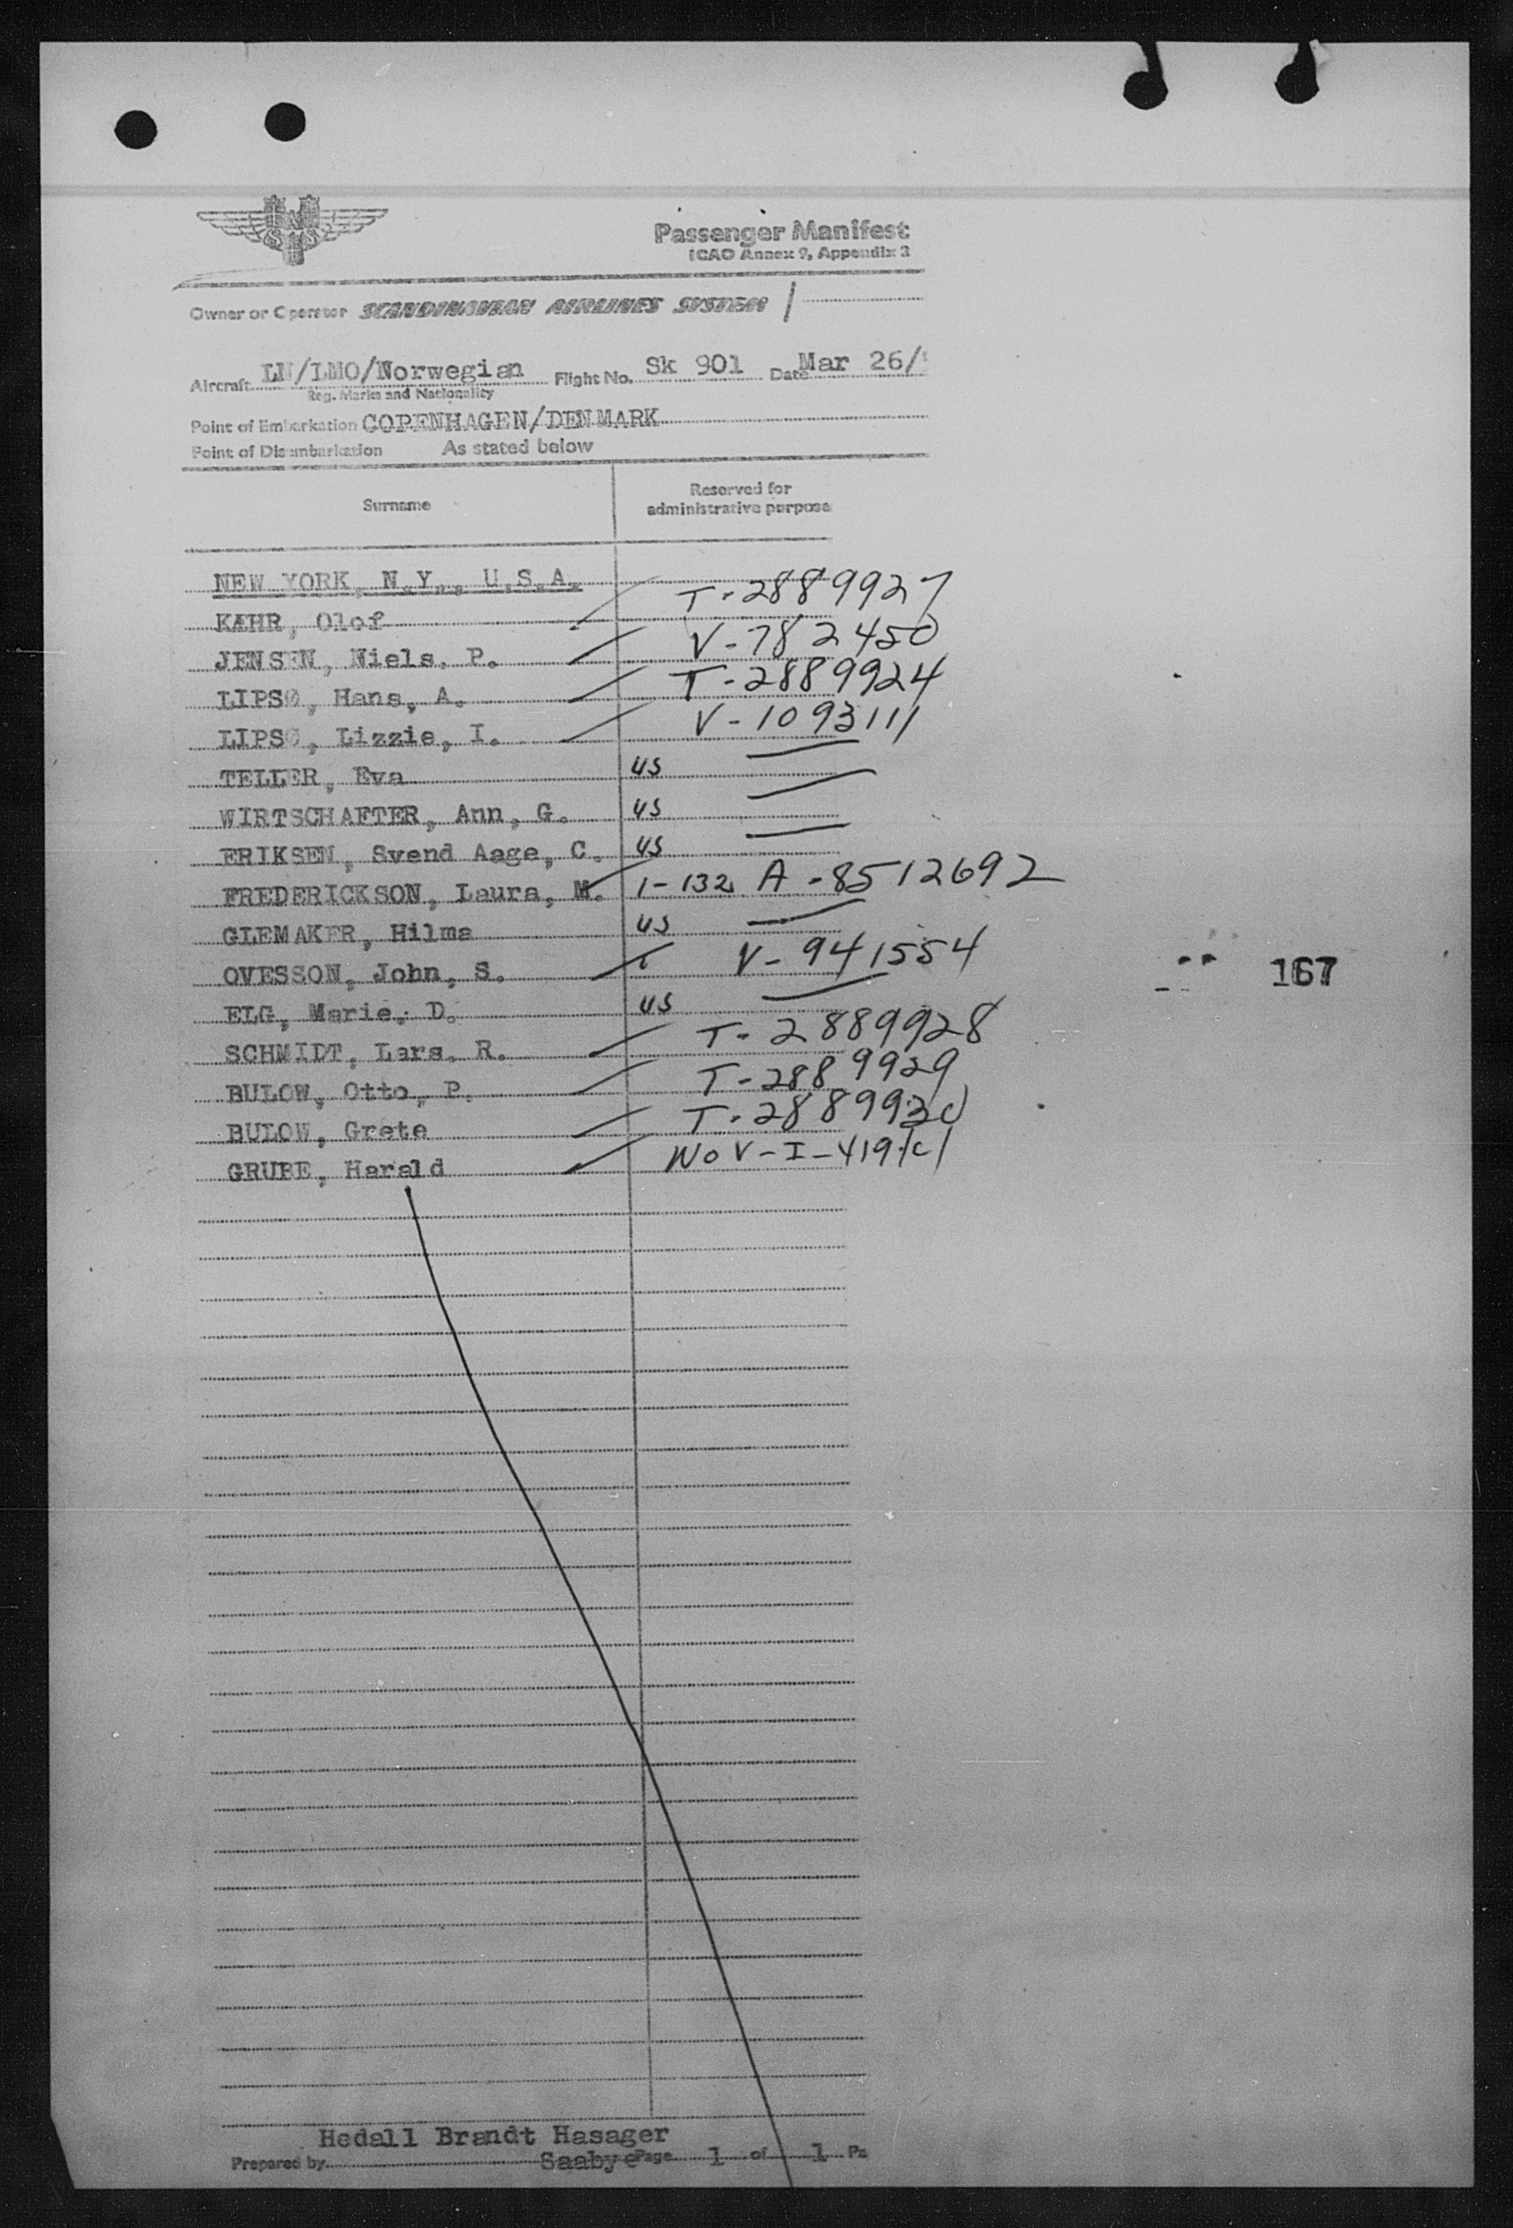 Passenger Manifest
ICAO Annex 9, Appendix 3
Owner or Operator SCANDINAVIAN AIRLINES SYSTEM
Aircraft LN/LMO/Norwegian Flight No. Sk 901 Date Mar 26/
Reg. Marks and Nationality
Point of Embarkation COPENHAGEN/DENMARK
Point of Disembarkation As stated below
Surname Reserved for administrative purpose
NEW YORK, N.Y., U.S.A.
KÆHR, Olof T-2889927
JENSEN, Niels, P. V-782450
LIPSØ, Hans, A. T-2889924
LIPSØ, Lizzie, I. V-1093111
TELLER, Eva US
WIRTSCHAFTER, Ann, G. US
ERIKSEN, Svend Aage, C. US
FREDERICKSON, Laura, M. 1-132 A-8512692
GLEMAKER, Hilma US
OVESSON, John, S. V-941554
ELG, Marie, D. US
SCHMIDT, Lars, R. T-2889928
BULOW, Otto, P. T-2889929
BULOW, Grete T-2889930
GRUBE, Harald No V-I-419/c/
167
Hedall Brandt Hasager
Prepared by Saabye Page 1 of 1 Pa